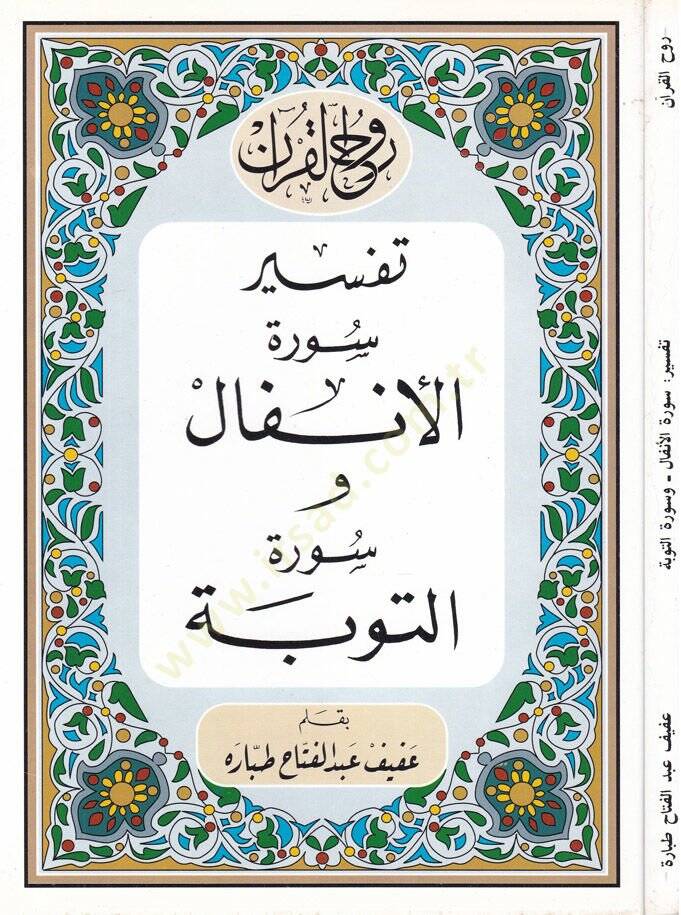 روح القرآن
تفسير
سُورة
الأنفال
و
سُورة
التوبة
بقلم
عفيف عبد الفتاح طبّاره
روح القرآن
تفسير: سورة الأنفال - وسورة التوبة
عفيف عبد الفتاح طبارة
www.irsad.com.tr